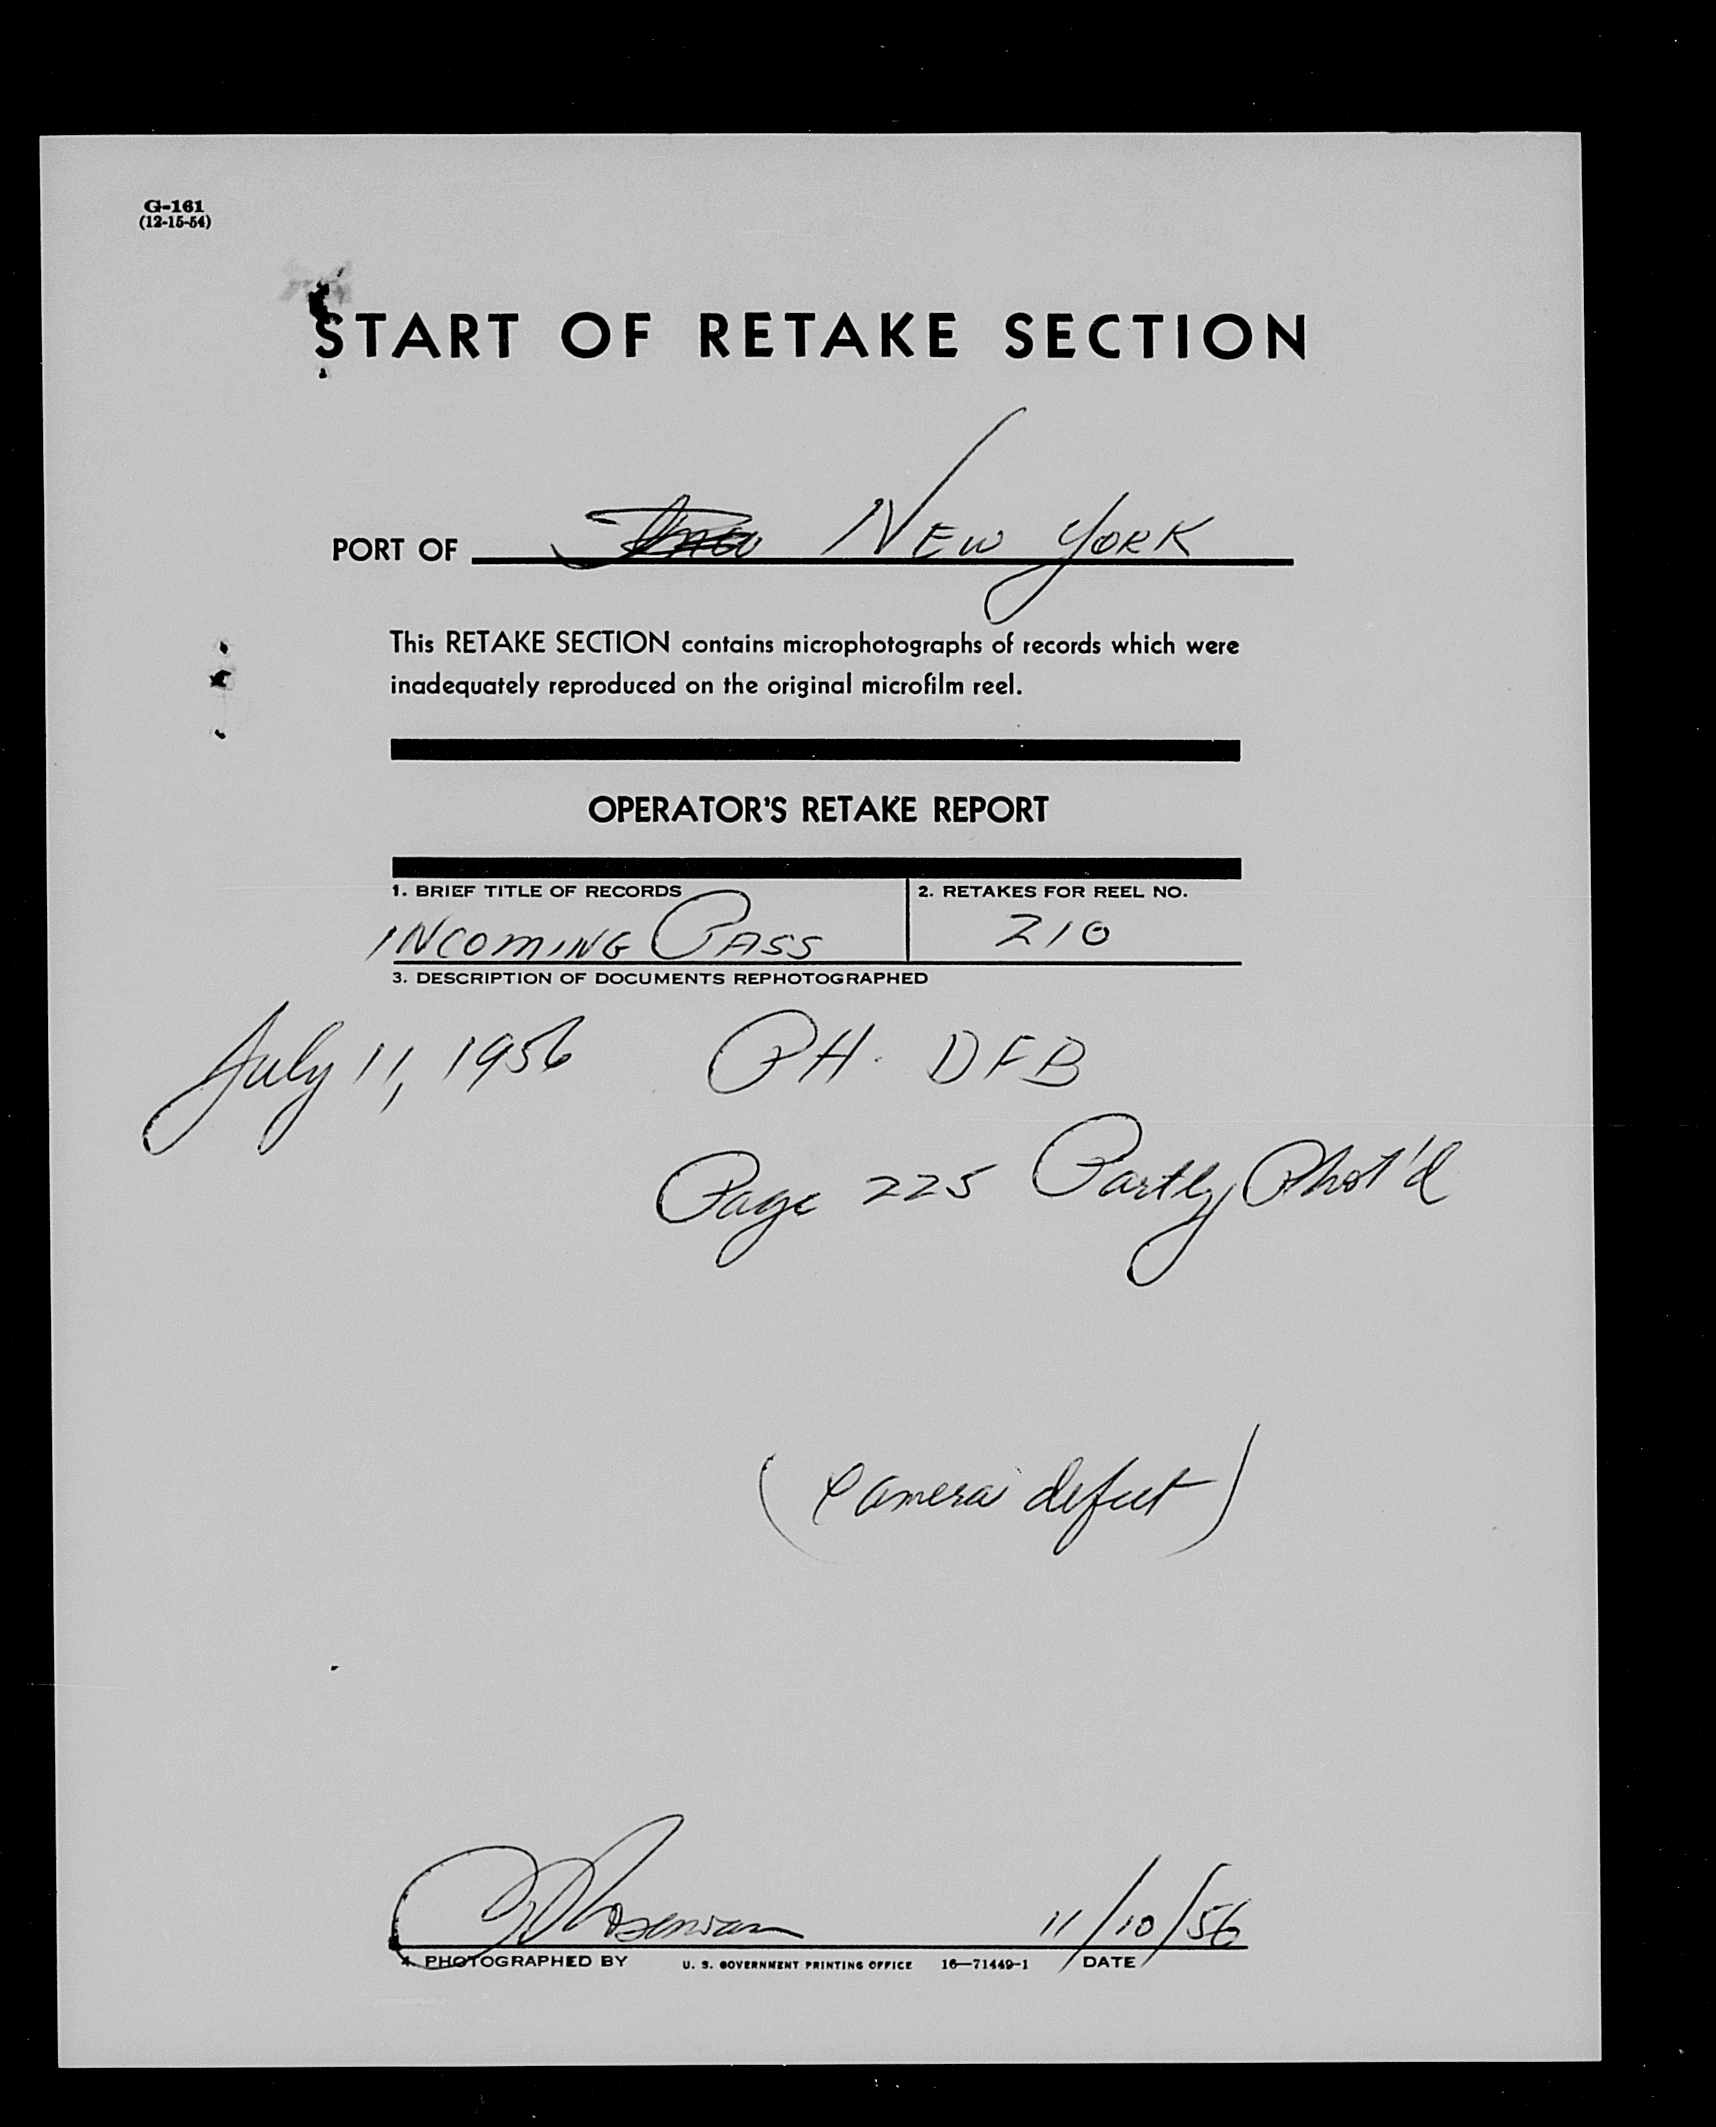 G-161
(12-15-54)
START OF RETAKE SECTION
PORT OF NEW YORK
This RETAKE SECTION contains microphotographs of records which were
inadequately reproduced on the original microfilm reel.
OPERATOR'S RETAKE REPORT
1. BRIEF TITLE OF RECORDS 2. RETAKES FOR REEL NO.
INCOMING PASS 210
3. DESCRIPTION OF DOCUMENTS REPHOTOGRAPHED
July 11, 1956 PH. DFB
Page 225 Partly Phot'd
(Camera defect)
11/10/56
4. PHOTOGRAPHED BY U. S. GOVERNMENT PRINTING OFFICE 16—71449-1 DATE